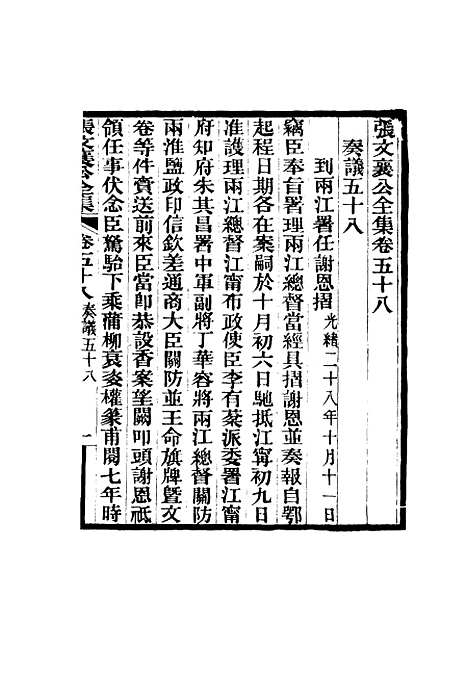 張文襄公全集卷五十八
奏議五十八
到兩江署任謝恩摺 光緒二十八年十月十一日
竊臣奉旨署理兩江總督當經具摺謝恩並奏報自鄂
起程日期各在案嗣於十月初六日馳抵江甯初九日
准護理兩江總督江甯布政使臣李有棻派委署江甯
府知府朱其昌署中軍副將丁華容將兩江總督關防
兩淮鹽政印信欽差通商大臣關防並王命旗牌暨文
卷等件賫送前來臣當卽恭設香案望闕叩頭謝恩祗
領任事伏念臣駑駘下乘蒲柳衰姿權篆甫閱七年時
張文襄公全集 卷五十八 奏議五十八 一